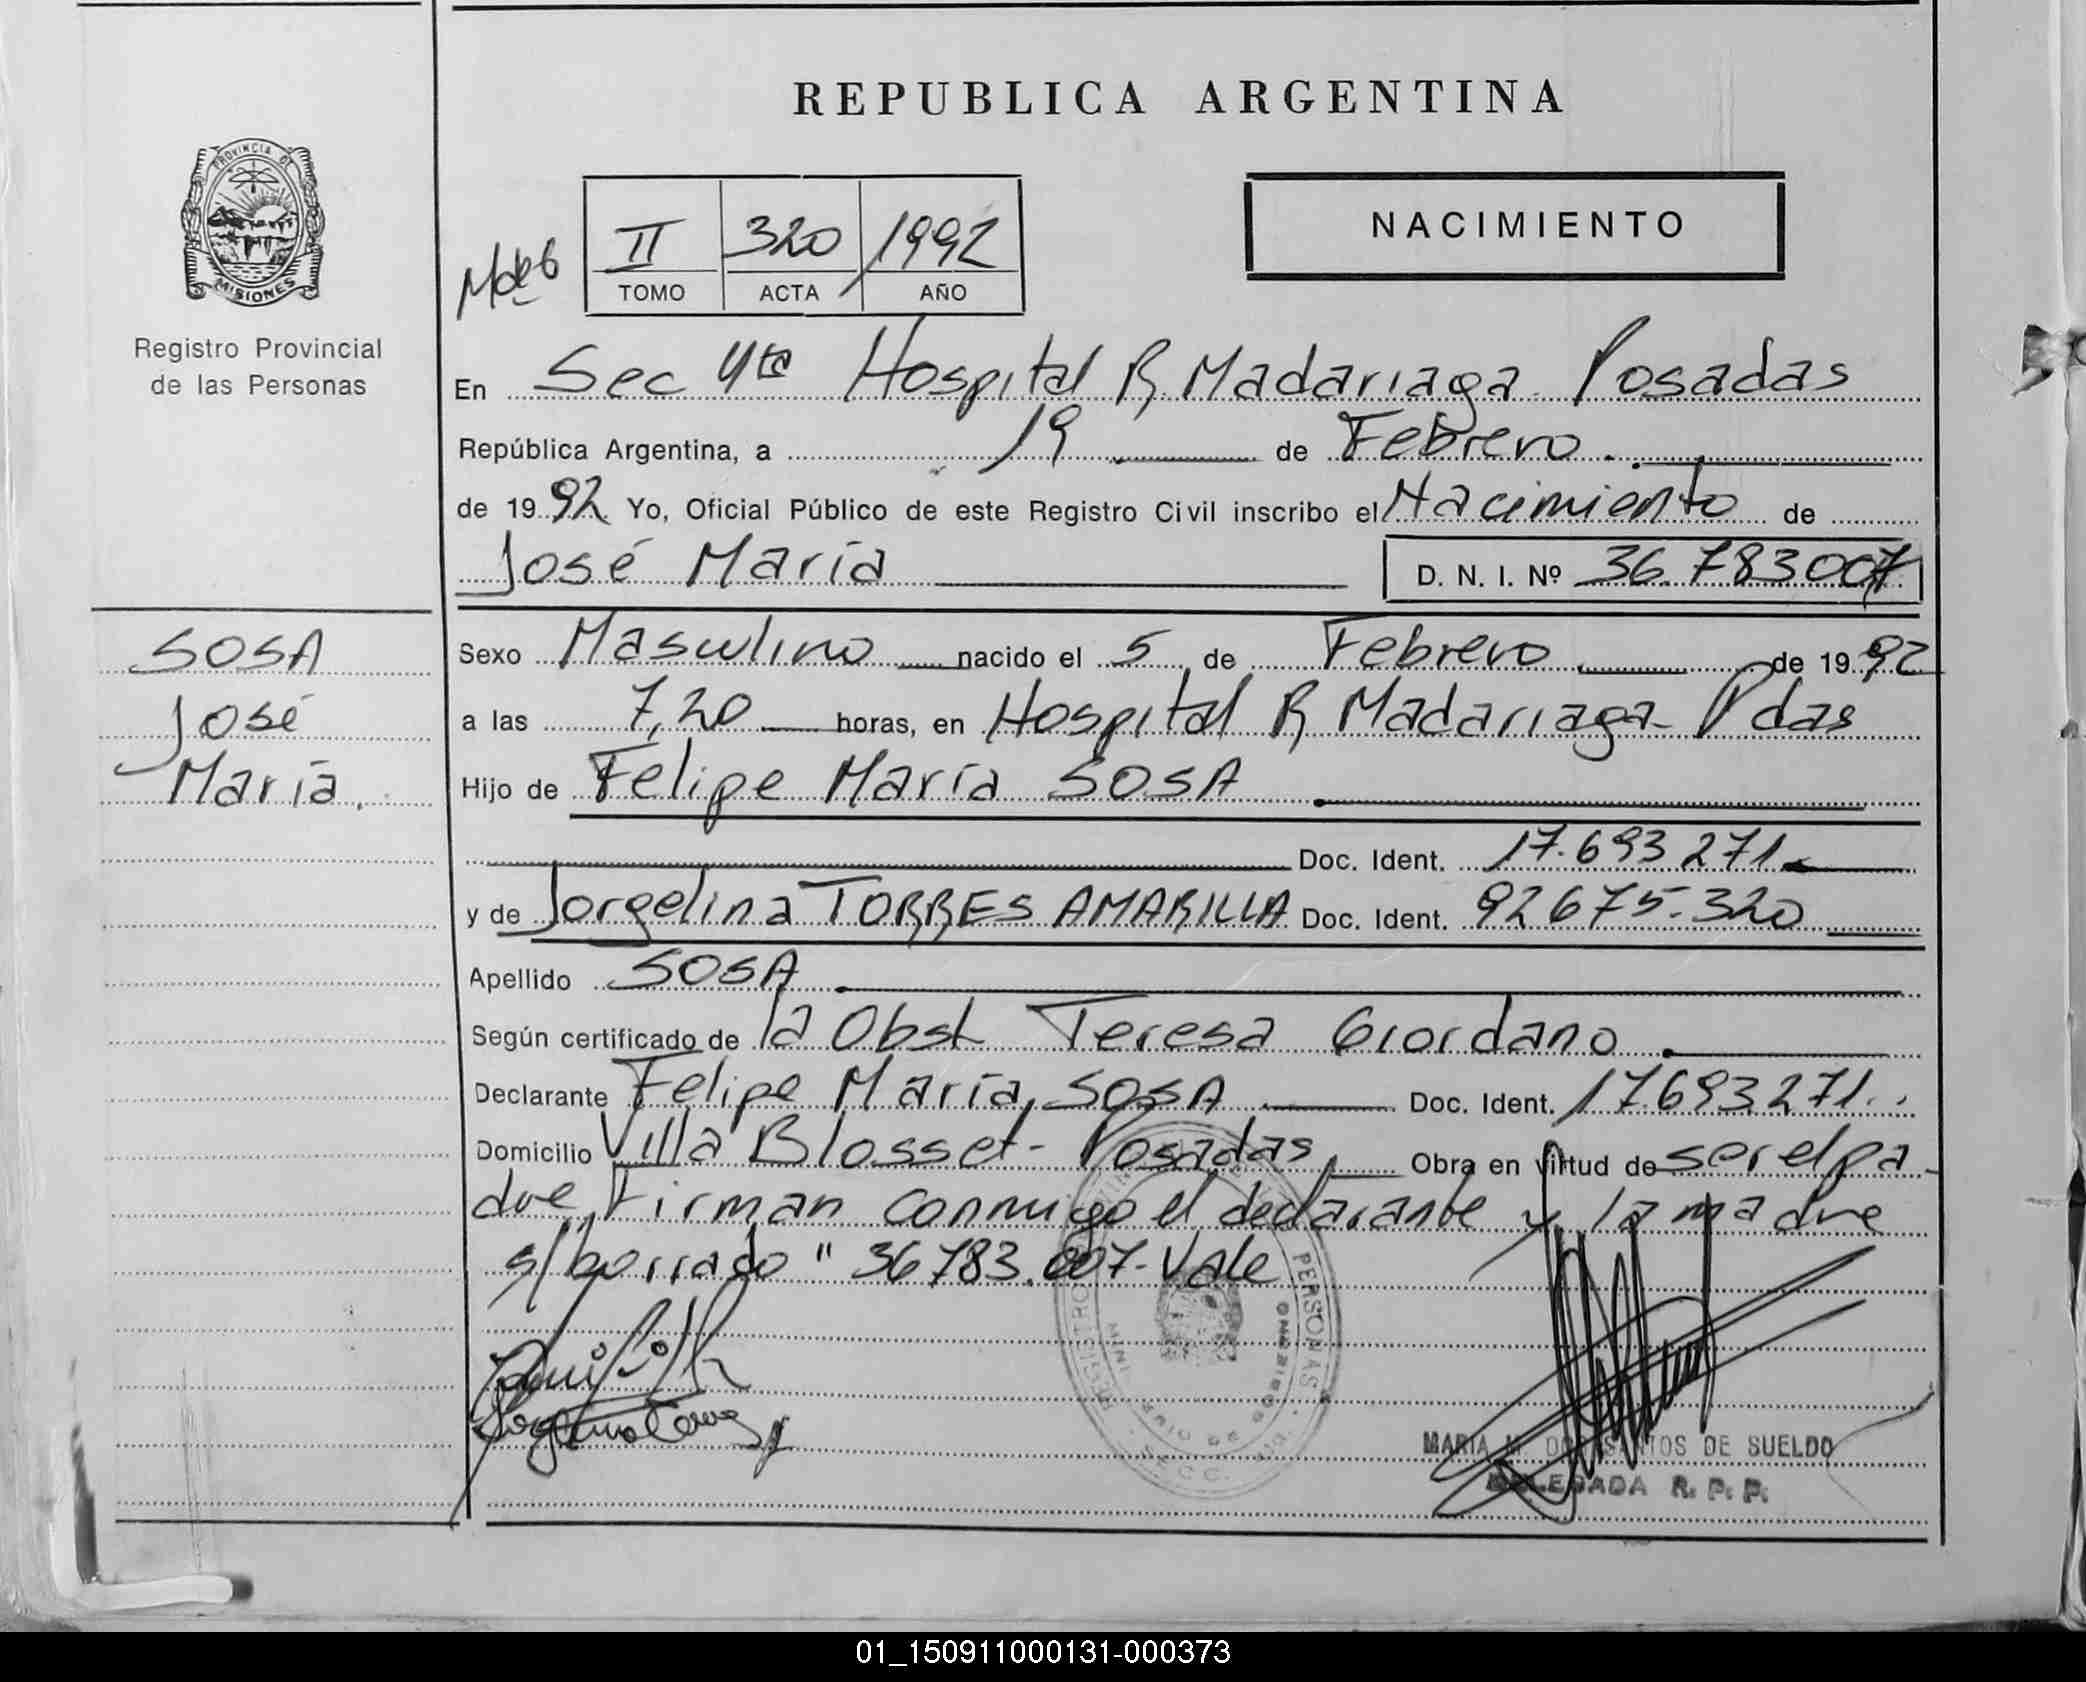 REPUBLICA ARGENTINA
PROVINCIA DE
MISIONES
Registro Provincial
de las Personas
NACIMIENTO
II 320 1992
TOMO ACTA AÑO
En Sec 4ta Hospital R. Madariaga Posadas
República Argentina, a 19 de Febrero
de 1992 Yo, Oficial Público de este Registro Civil inscribo el Nacimiento de
José María D. N. I. Nº 36.783007
SOSA
José
María.
Sexo Masculino nacido el 5 de Febrero de 1992
a las 7,20 horas, en Hospital R. Madariaga - Pdas
Hijo de Felipe María SOSA
Doc. Ident. 17.693.271
y de Jorgelina TORRES AMARILLA Doc. Ident. 92675.320
Apellido SOSA
Según certificado de la Obst Teresa Giordano
Declarante Felipe María SOSA Doc. Ident. 17.693271
Domicilio Villa Blosset - Posadas Obra en virtud de ser el pa-
dre, Firman conmigo el declarante y la madre
s/borrado " 36783.007- Vale
PERSONAS
MARIA M. DOS SANTOS DE SUELDO
DELEGADA R. P. P.
01_150911000131-000373